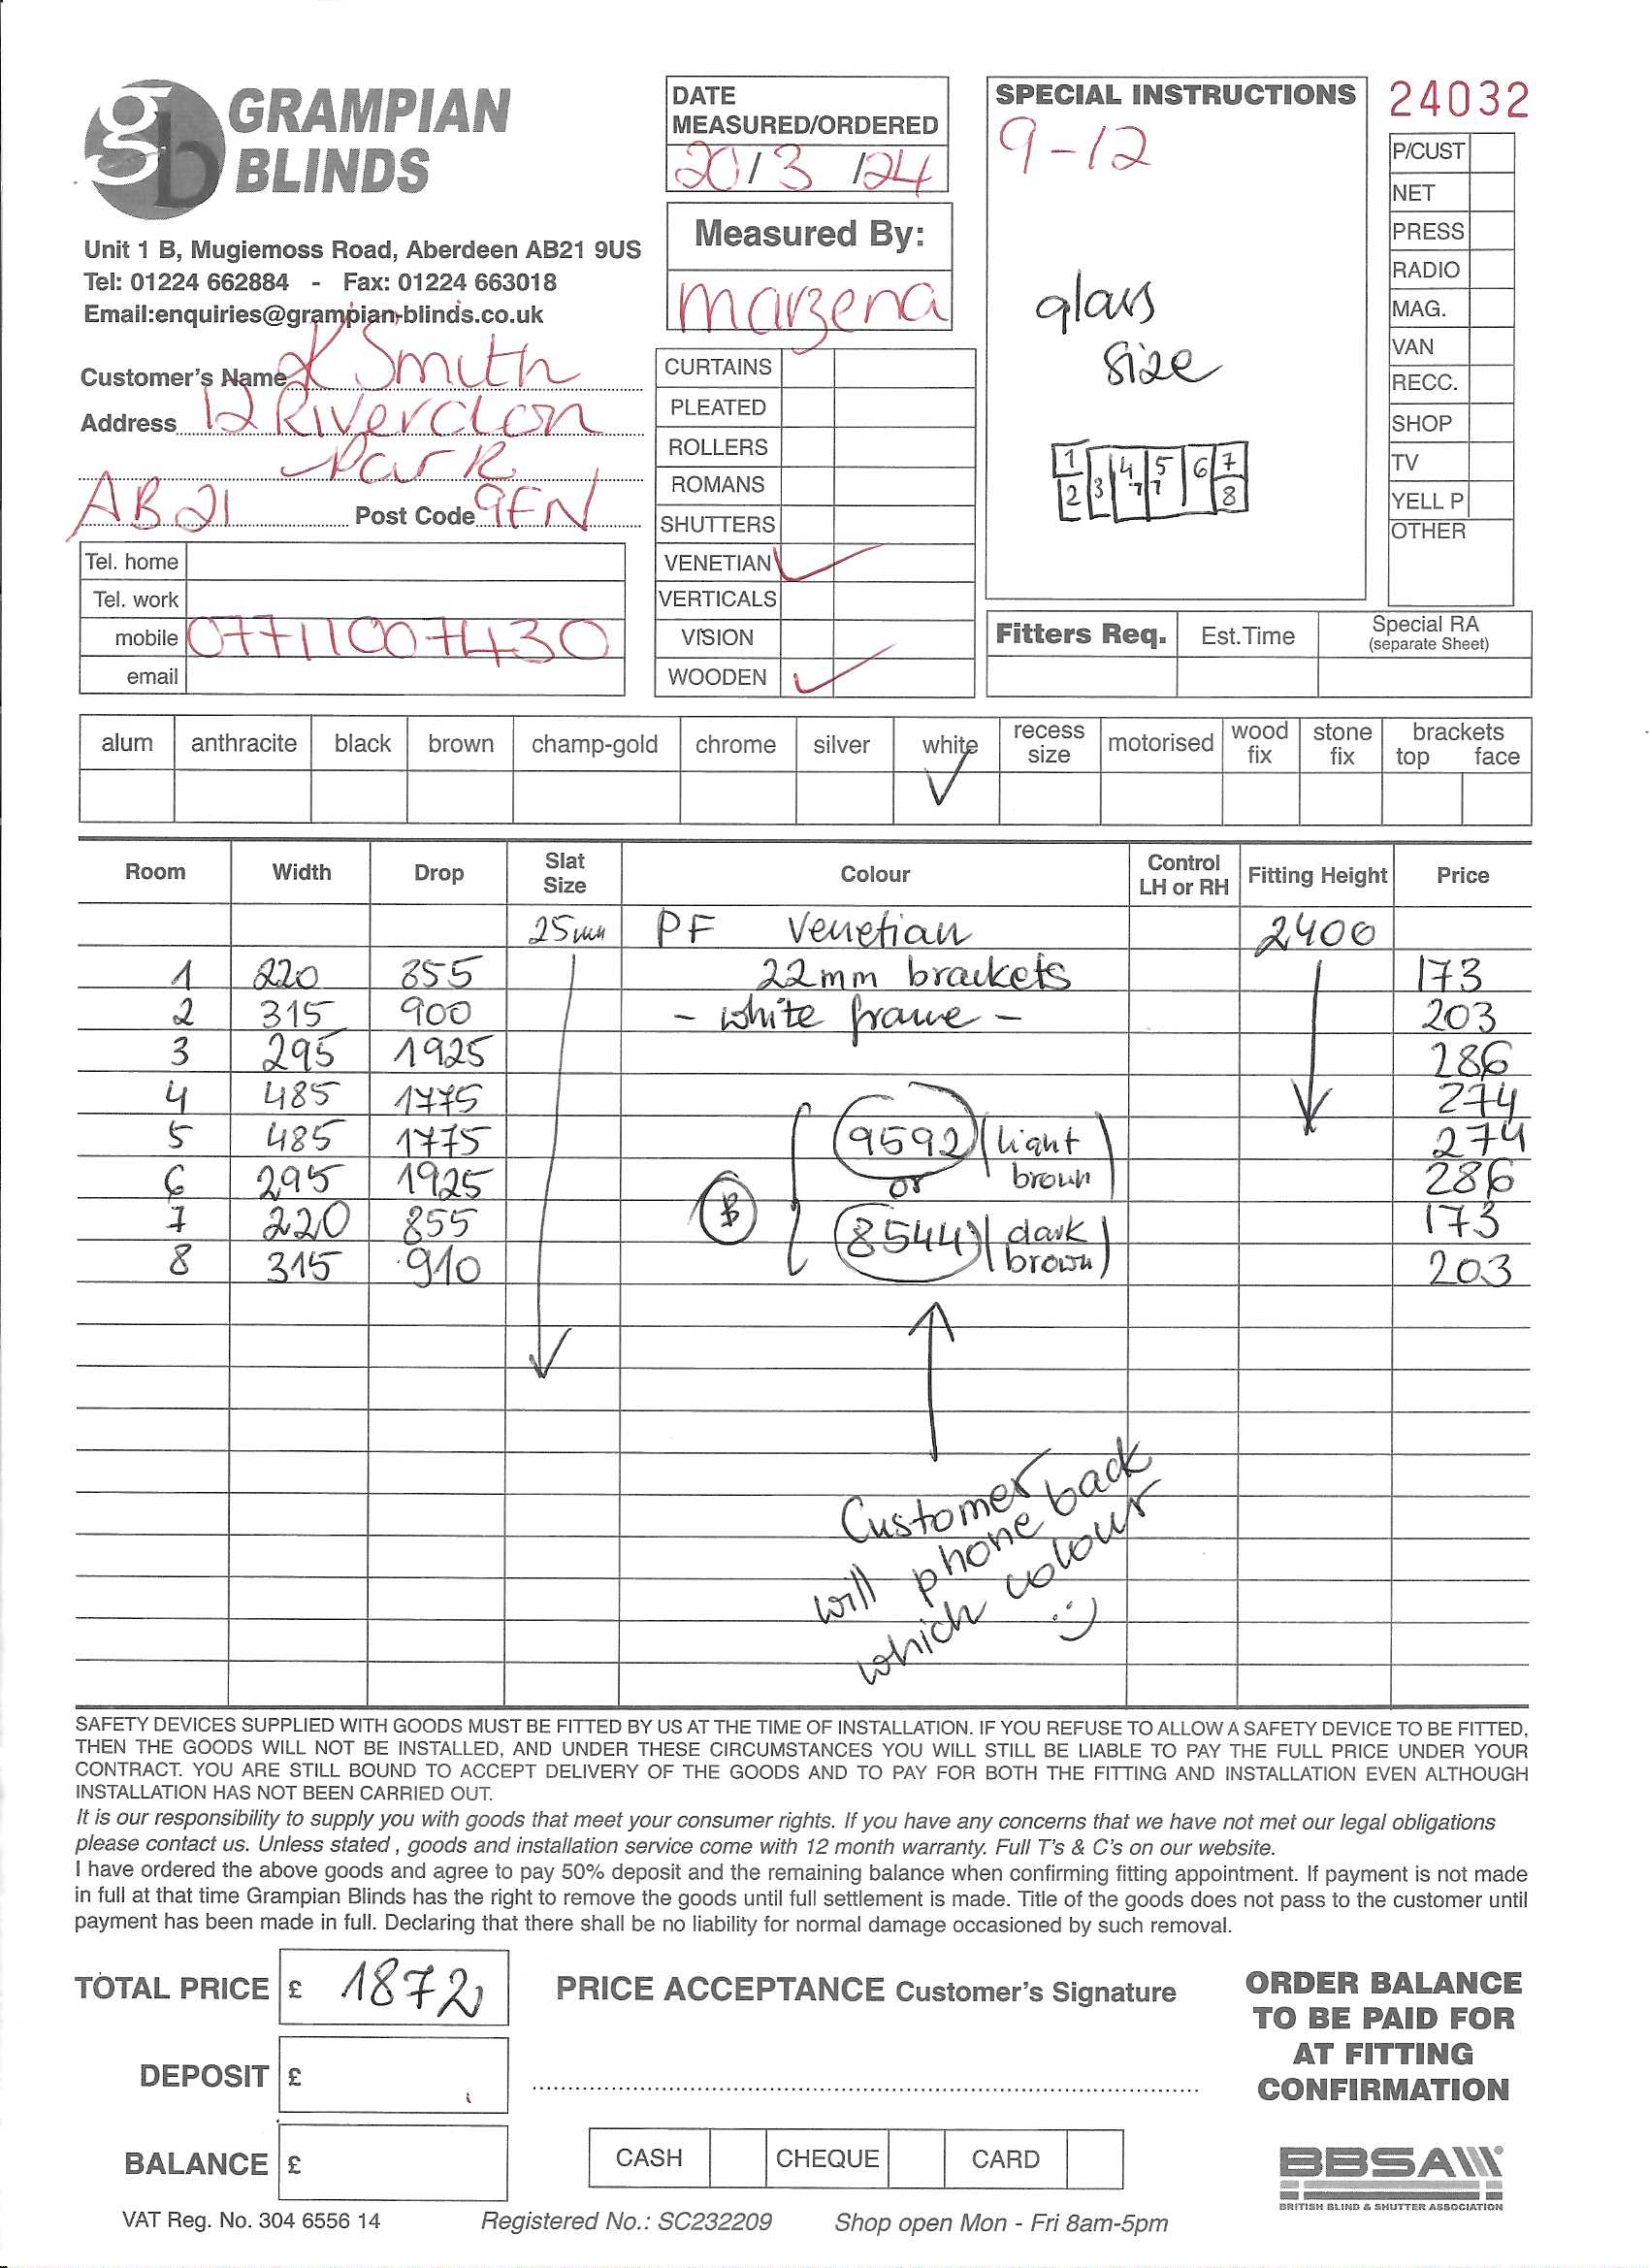 GRAMPIAN
BLINDS
Unit 1 B, Mugiemoss Road, Aberdeen AB21 9US
Tel: 01224 662884 - Fax: 01224 663018
Email:enquiries@grampian-blinds.co.uk
Customer's Name K Smith
Address 12 Riverdon
Park
AB21 Post Code 9EN
Tel. home
Tel. work
mobile 07711007430
email
DATE
MEASURED/ORDERED
20/3/24
Measured By:
Marzena
CURTAINS
PLEATED
ROLLERS
ROMANS
SHUTTERS
VENETIAN ✓
VERTICALS
VISION
WOODEN ✓
SPECIAL INSTRUCTIONS
9-12
glass
size
1 4 5 6 7
2 3 7 7 8
24032
P/CUST
NET
PRESS
RADIO
MAG.
VAN
RECC.
SHOP
TV
YELL P
OTHER
Fitters Req. Est.Time Special RA
(separate Sheet)
alum anthracite black brown champ-gold chrome silver white recess size motorised wood fix stone fix brackets top face
✓
Room Width Drop Slat Size Colour Control LH or RH Fitting Height Price
25mm PF Venetian 2400
1 220 855 22mm brackets 173
2 315 900 - white frame - 203
3 295 1925 286
4 485 1775 274
5 485 1775 9592 (light 274
6 295 1925 or brown) 286
7 220 855 8544 (dark 173
8 315 910 brown) 203
Customer
will phone back
which colour
:)
SAFETY DEVICES SUPPLIED WITH GOODS MUST BE FITTED BY US AT THE TIME OF INSTALLATION. IF YOU REFUSE TO ALLOW A SAFETY DEVICE TO BE FITTED,
THEN THE GOODS WILL NOT BE INSTALLED, AND UNDER THESE CIRCUMSTANCES YOU WILL STILL BE LIABLE TO PAY THE FULL PRICE UNDER YOUR
CONTRACT. YOU ARE STILL BOUND TO ACCEPT DELIVERY OF THE GOODS AND TO PAY FOR BOTH THE FITTING AND INSTALLATION EVEN ALTHOUGH
INSTALLATION HAS NOT BEEN CARRIED OUT.
It is our responsibility to supply you with goods that meet your consumer rights. If you have any concerns that we have not met our legal obligations
please contact us. Unless stated , goods and installation service come with 12 month warranty. Full T's & C's on our website.
I have ordered the above goods and agree to pay 50% deposit and the remaining balance when confirming fitting appointment. If payment is not made
in full at that time Grampian Blinds has the right to remove the goods until full settlement is made. Title of the goods does not pass to the customer until
payment has been made in full. Declaring that there shall be no liability for normal damage occasioned by such removal.
TOTAL PRICE £ 1872
DEPOSIT £
BALANCE £
PRICE ACCEPTANCE Customer's Signature
CASH CHEQUE CARD
ORDER BALANCE
TO BE PAID FOR
AT FITTING
CONFIRMATION
BBSA
BRITISH BLIND & SHUTTER ASSOCIATION
VAT Reg. No. 304 6556 14 Registered No.: SC232209 Shop open Mon - Fri 8am-5pm